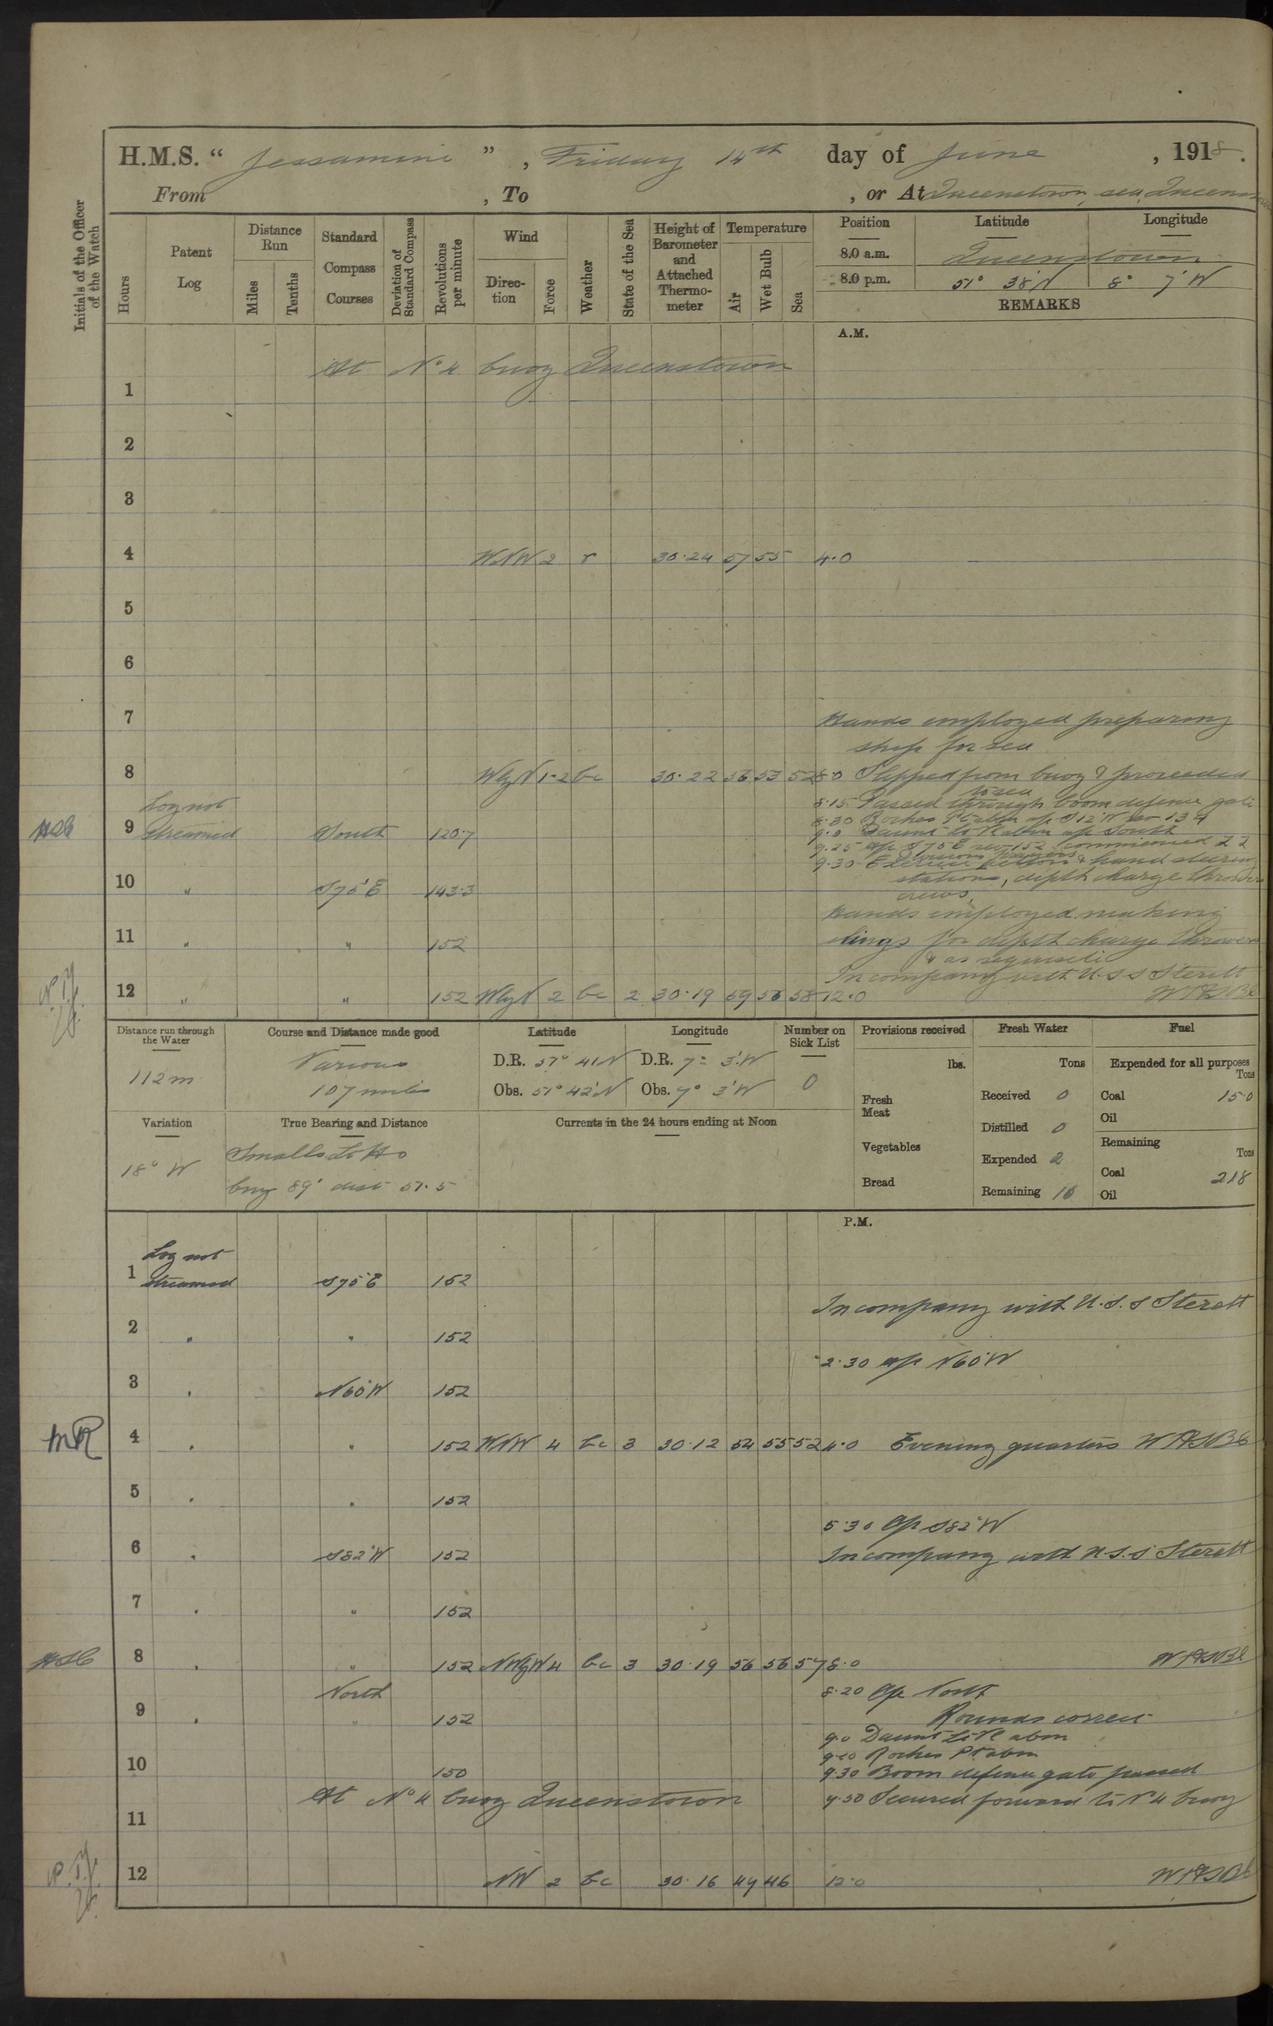 H.M.S. " Jessamine " , Friday 14th day of June , 1918.
From , To , or At Queenstown, sea, Queenstown
Initials of the Officer of the Watch
Hours
Patent Log
Distance Run
Miles
Tenths
Standard Compass Courses
Deviation of Standard Compass
Revolutions per minute
Wind
Direction
Force
Weather
State of the Sea
Height of Barometer and Attached Thermometer
Temperature
Air
Wet Bulb
Sea
Position Latitude Longitude
8.0 a.m. Queenstown
8.0 p.m. 51° 38'N 8° 7'W
REMARKS
A.M.
At No 4 buoy Queenstown
1
2
3
4 WNW 2 r 30.24 57 55 4.0
5
6
7 Hands employed preparing
ship for sea
8 WbyN 1-2 bc 30.22 56 53 52 8.0 Slipped from buoy & proceeded
to sea
Log not 8.15 Passed through boom defence gate
8.30 Roches Pt abm a/c S12°W
9 streamed South 120.7 9.0 Daunt Lt V abm a/c South
9.25 a/c S75°E rev 152 commenced ZZ
9.30 Exercise action & hand steering
10 " S75°E 143.3 stations, depth charge thrower
crews,
Hands employed making
11 " " 152 slings for depth charge throwers
& as requisite
In company with U.S.S Sterett
12 " " 152 WbyN 2 bc 2 30.19 59 56 58 12.0
Distance run through the Water
112m
Course and Distance made good
Various
107 miles
Latitude
D.R. 51° 41'N
Obs. 51° 42'N
Longitude
D.R. 7° 3'W
Obs. 7° 3'W
Number on Sick List
0
Provisions received
lbs.
Fresh Meat
Vegetables
Bread
Fresh Water
Tons
Received 0
Distilled 0
Expended 2
Remaining 16
Fuel
Expended for all purposes
Tons
Coal 15.0
Oil
Remaining
Tons
Coal 218
Oil
Variation
18° W
True Bearing and Distance
Smalls Lt Ho
brg 89° dist 51.5
Currents in the 24 hours ending at Noon
P.M.
Log not
1 streamed S75°E 152
In company with U.S.S Sterett
2 " " 152
2.30 a/c N60°W
3 " N60°W 152
MR 4 " " 152 WNW 4 bc 3 30.12 54 55 52 4.0 Evening quarters
5 " " 152
5.30 A/c S82°W
6 " S82°W 152 In company with U.S.S Sterett
7 " " 152
8 " " 152 NWbyW 4 bc 3 30.19 56 56 57 8.0
North 8.20 A/c North
Rounds correct
9 " " 152 9.0 Daunt Lt V abm
9.10 Roches Pt abm
10 150 9.30 Boom defence gate passed
At No 4 buoy Queenstown 9.50 Secured forward to No 4 buoy
11
12 NW 2 bc 30.16 49 46 12.0